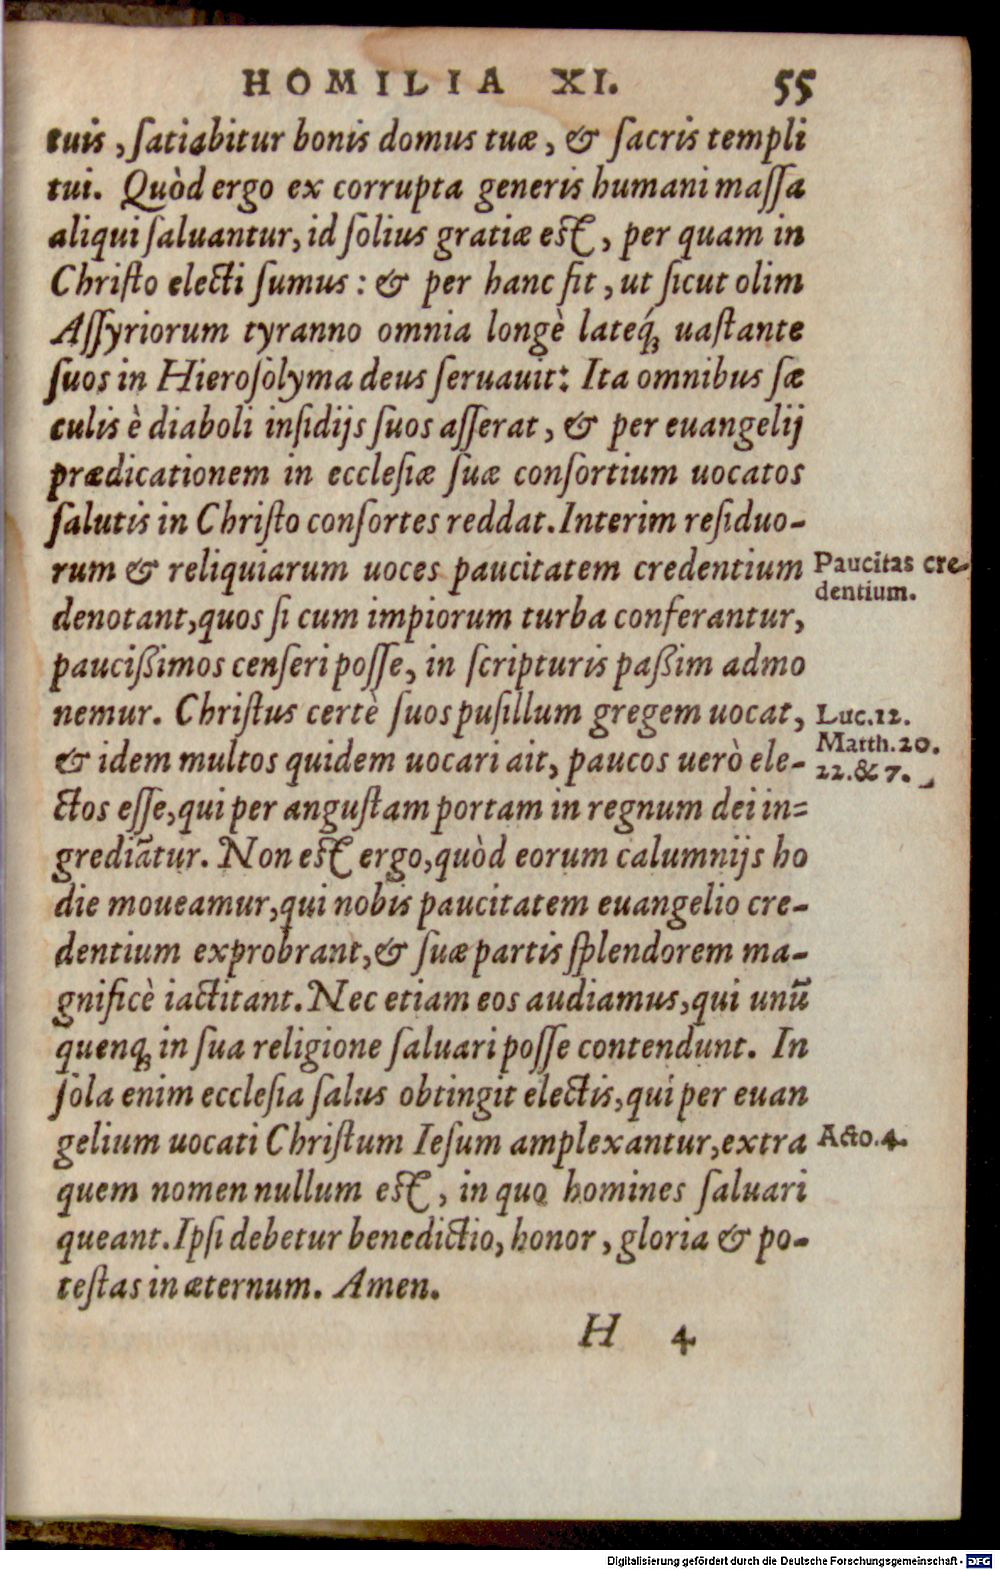 HOMILIA XI. 55
tuis, ſatiabitur bonis domus tuæ, & ſacris templi
tui. Quòd ergo ex corrupta generis humani maſſa
aliqui ſaluantur, id ſolius gratiæ eſt, per quam in
Chriſto electi ſumus: & per hanc fit, ut ſicut olim
Aſſyriorum tyranno omnia longè lateq́ꝫ uaſtante
ſuos in Hieroſolyma deus ſeruauit: Ita omnibus ſæ
culis è diaboli inſidijs ſuos aſſerat, & per euangelij
prædicationem in eccleſiæ ſuæ conſortium uocatos
ſalutis in Chriſto conſortes reddat. Interim reſiduo-
rum & reliquiarum uoces paucitatem credentium
denotant, quos ſi cum impiorum turba conferantur,
pauciſſimos cenſeri poſſe, in ſcripturis paſſim admo
nemur. Chriſtus certè ſuos puſillum gregem uocat,
& idem multos quidem uocari ait, paucos uerò ele-
ctos eſſe, qui per anguſtam portam in regnum dei in=
grediātur. Non eſt ergo, quòd eorum calumnijs ho
die moueamur, qui nobis paucitatem euangelio cre-
dentium exprobrant, & ſuæ partis ſplendorem ma-
gnificè iactitant. Nec etiam eos audiamus, qui unū
quenqꝫ in ſua religione ſaluari poſſe contendunt. In
ſola enim eccleſia ſalus obtingit electis, qui per euan
gelium uocati Chriſtum Ieſum amplexantur, extra
quem nomen nullum eſt, in quo homines ſaluari
queant. Ipſi debetur benedictio, honor, gloria & po-
teſtas in æternum. Amen.
H 4
Paucitas cre-
dentium.
Luc.12.
Matth.20.
22.& 7.
Acto.4.
Digitalisierung gefördert durch die Deutsche Forschungsgemeinschaft - DFG